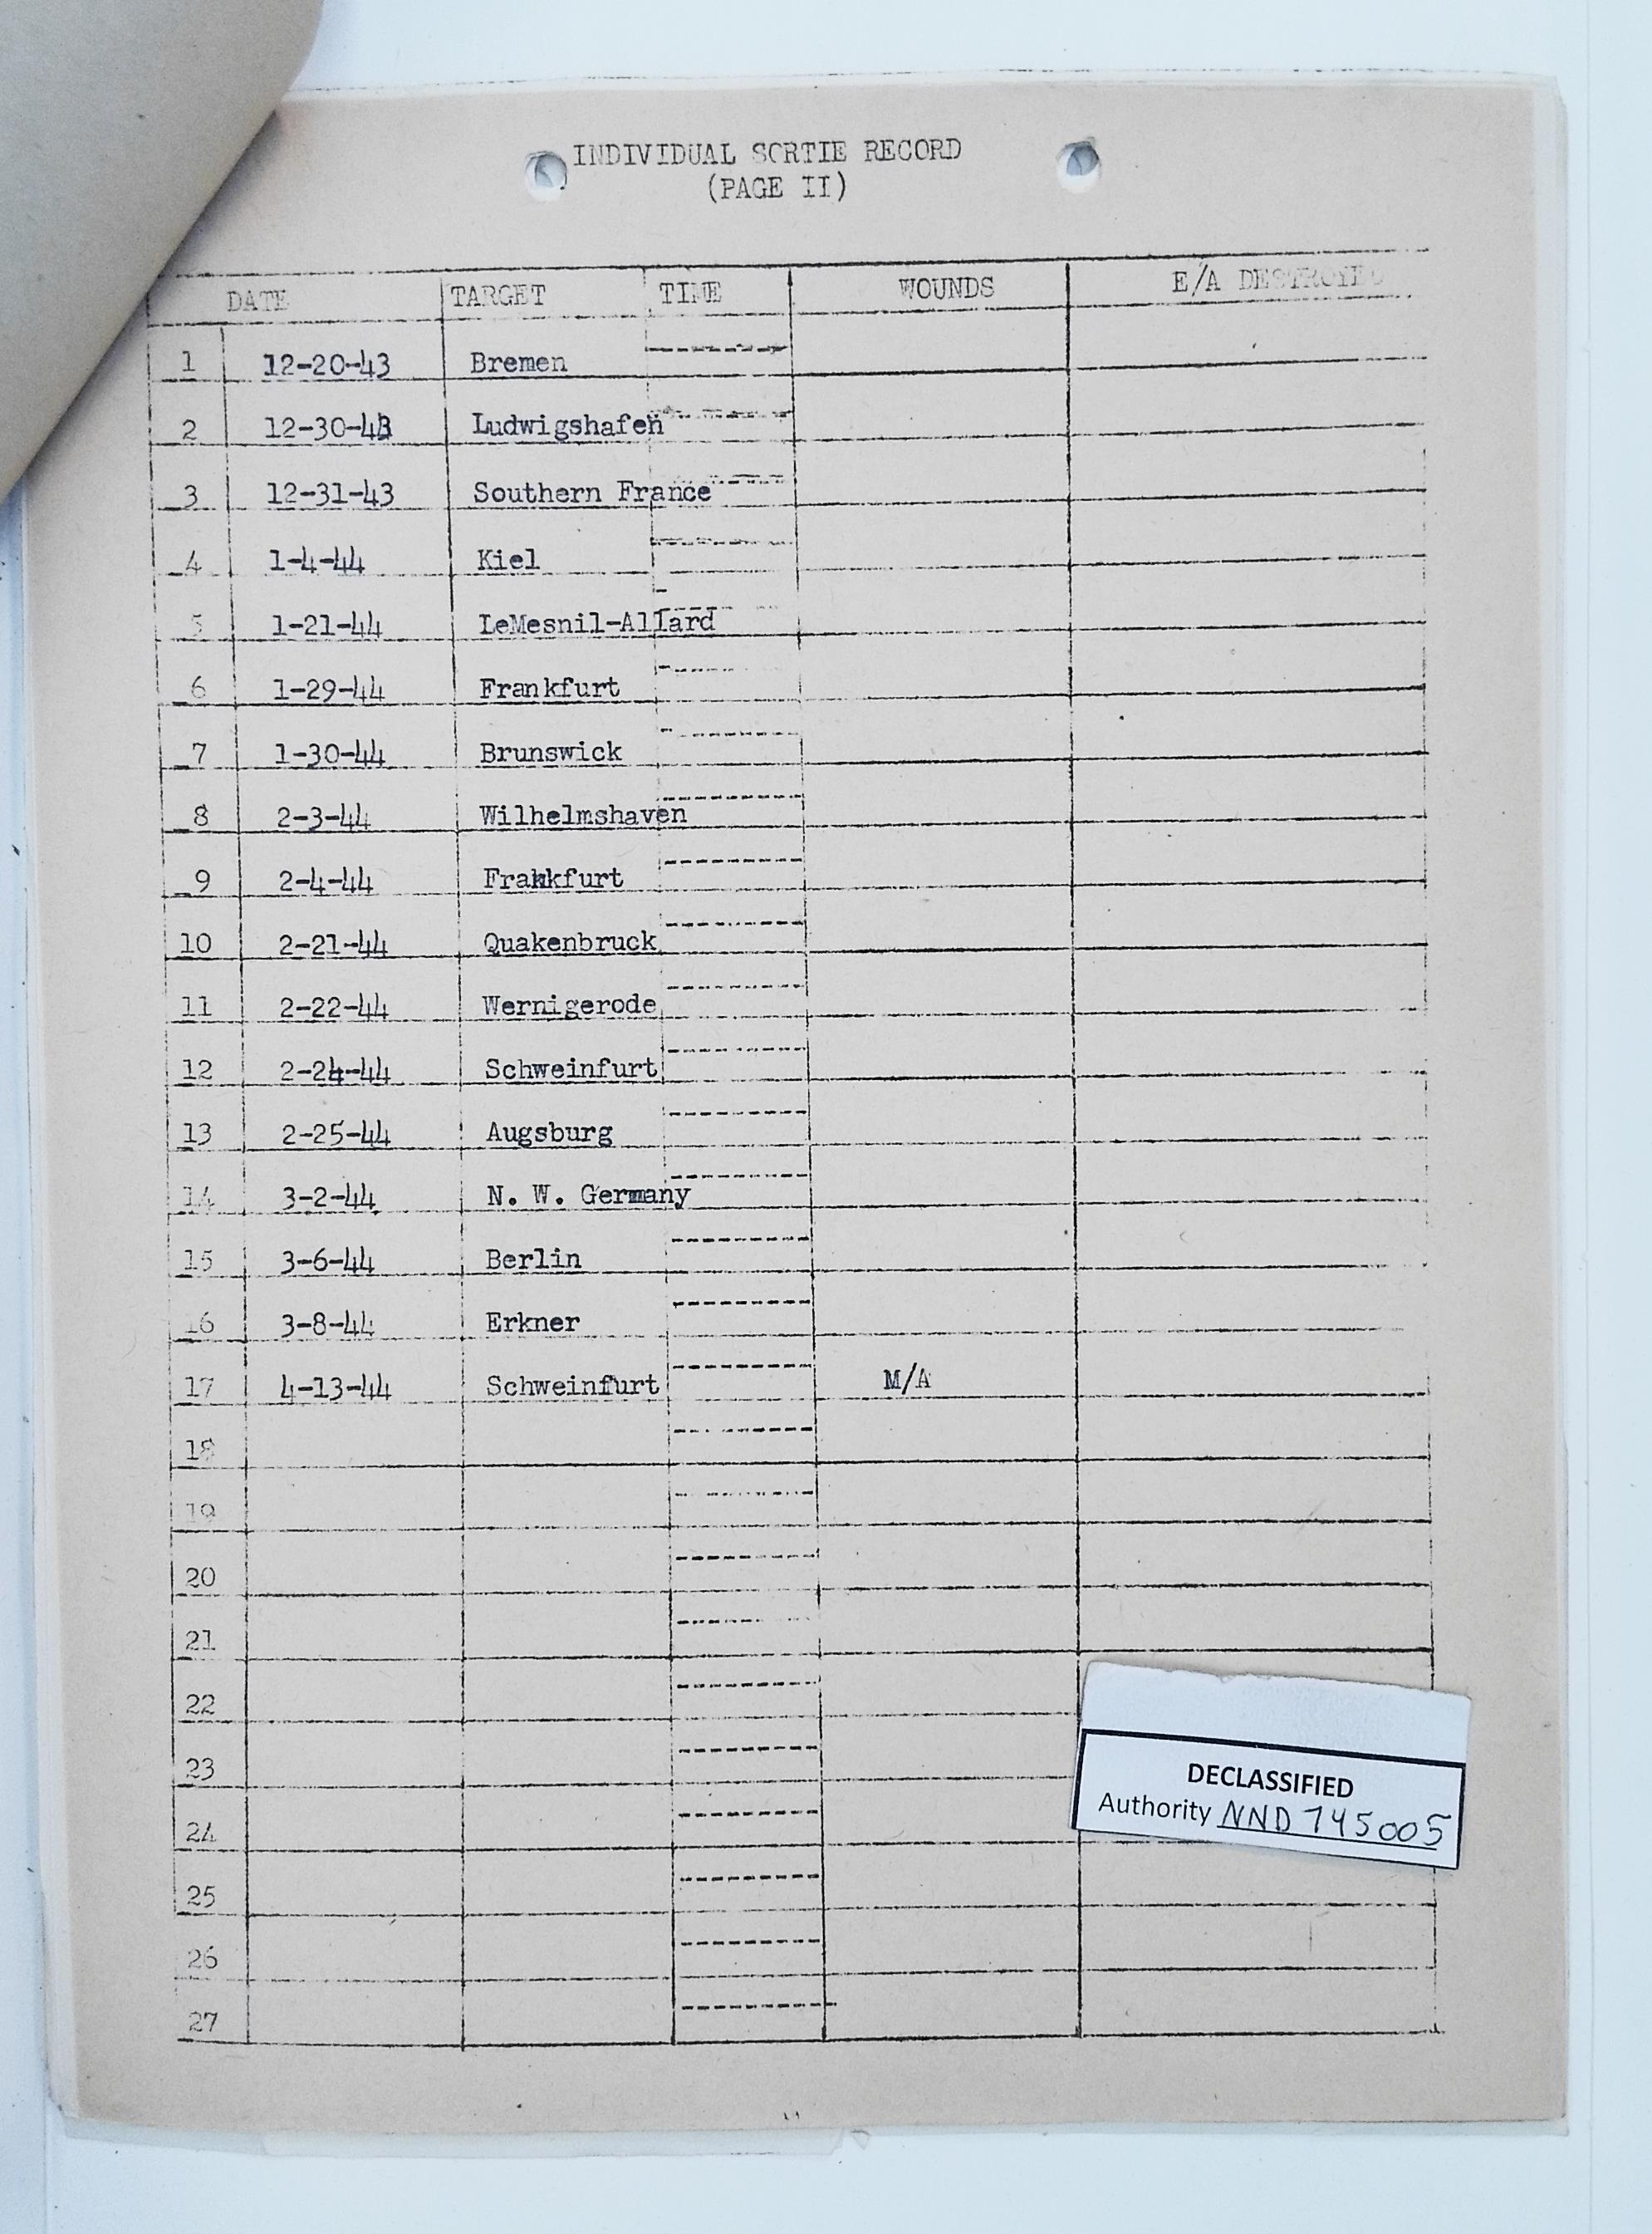 INDIVIDUAL SORTIE RECORD
(PAGE II)
DATE TARGET TIME WOUNDS E/A DESTROYED
1 12-20-43 Bremen
2 12-30-43 Ludwigshafen
3 12-31-43 Southern France
4 1-4-44 Kiel
5 1-21-44 LeMesnil-Allard
6 1-29-44 Frankfurt
7 1-30-44 Brunswick
8 2-3-44 Wilhelmshaven
9 2-4-44 Frankfurt
10 2-21-44 Quakenbruck
11 2-22-44 Wernigerode
12 2-24-44 Schweinfurt
13 2-25-44 Augsburg
14 3-2-44 N. W. Germany
15 3-6-44 Berlin
16 3-8-44 Erkner
17 4-13-44 Schweinfurt M/A
18
19
20
21
22
23
24
25
26
27
DECLASSIFIED
Authority NND 745005